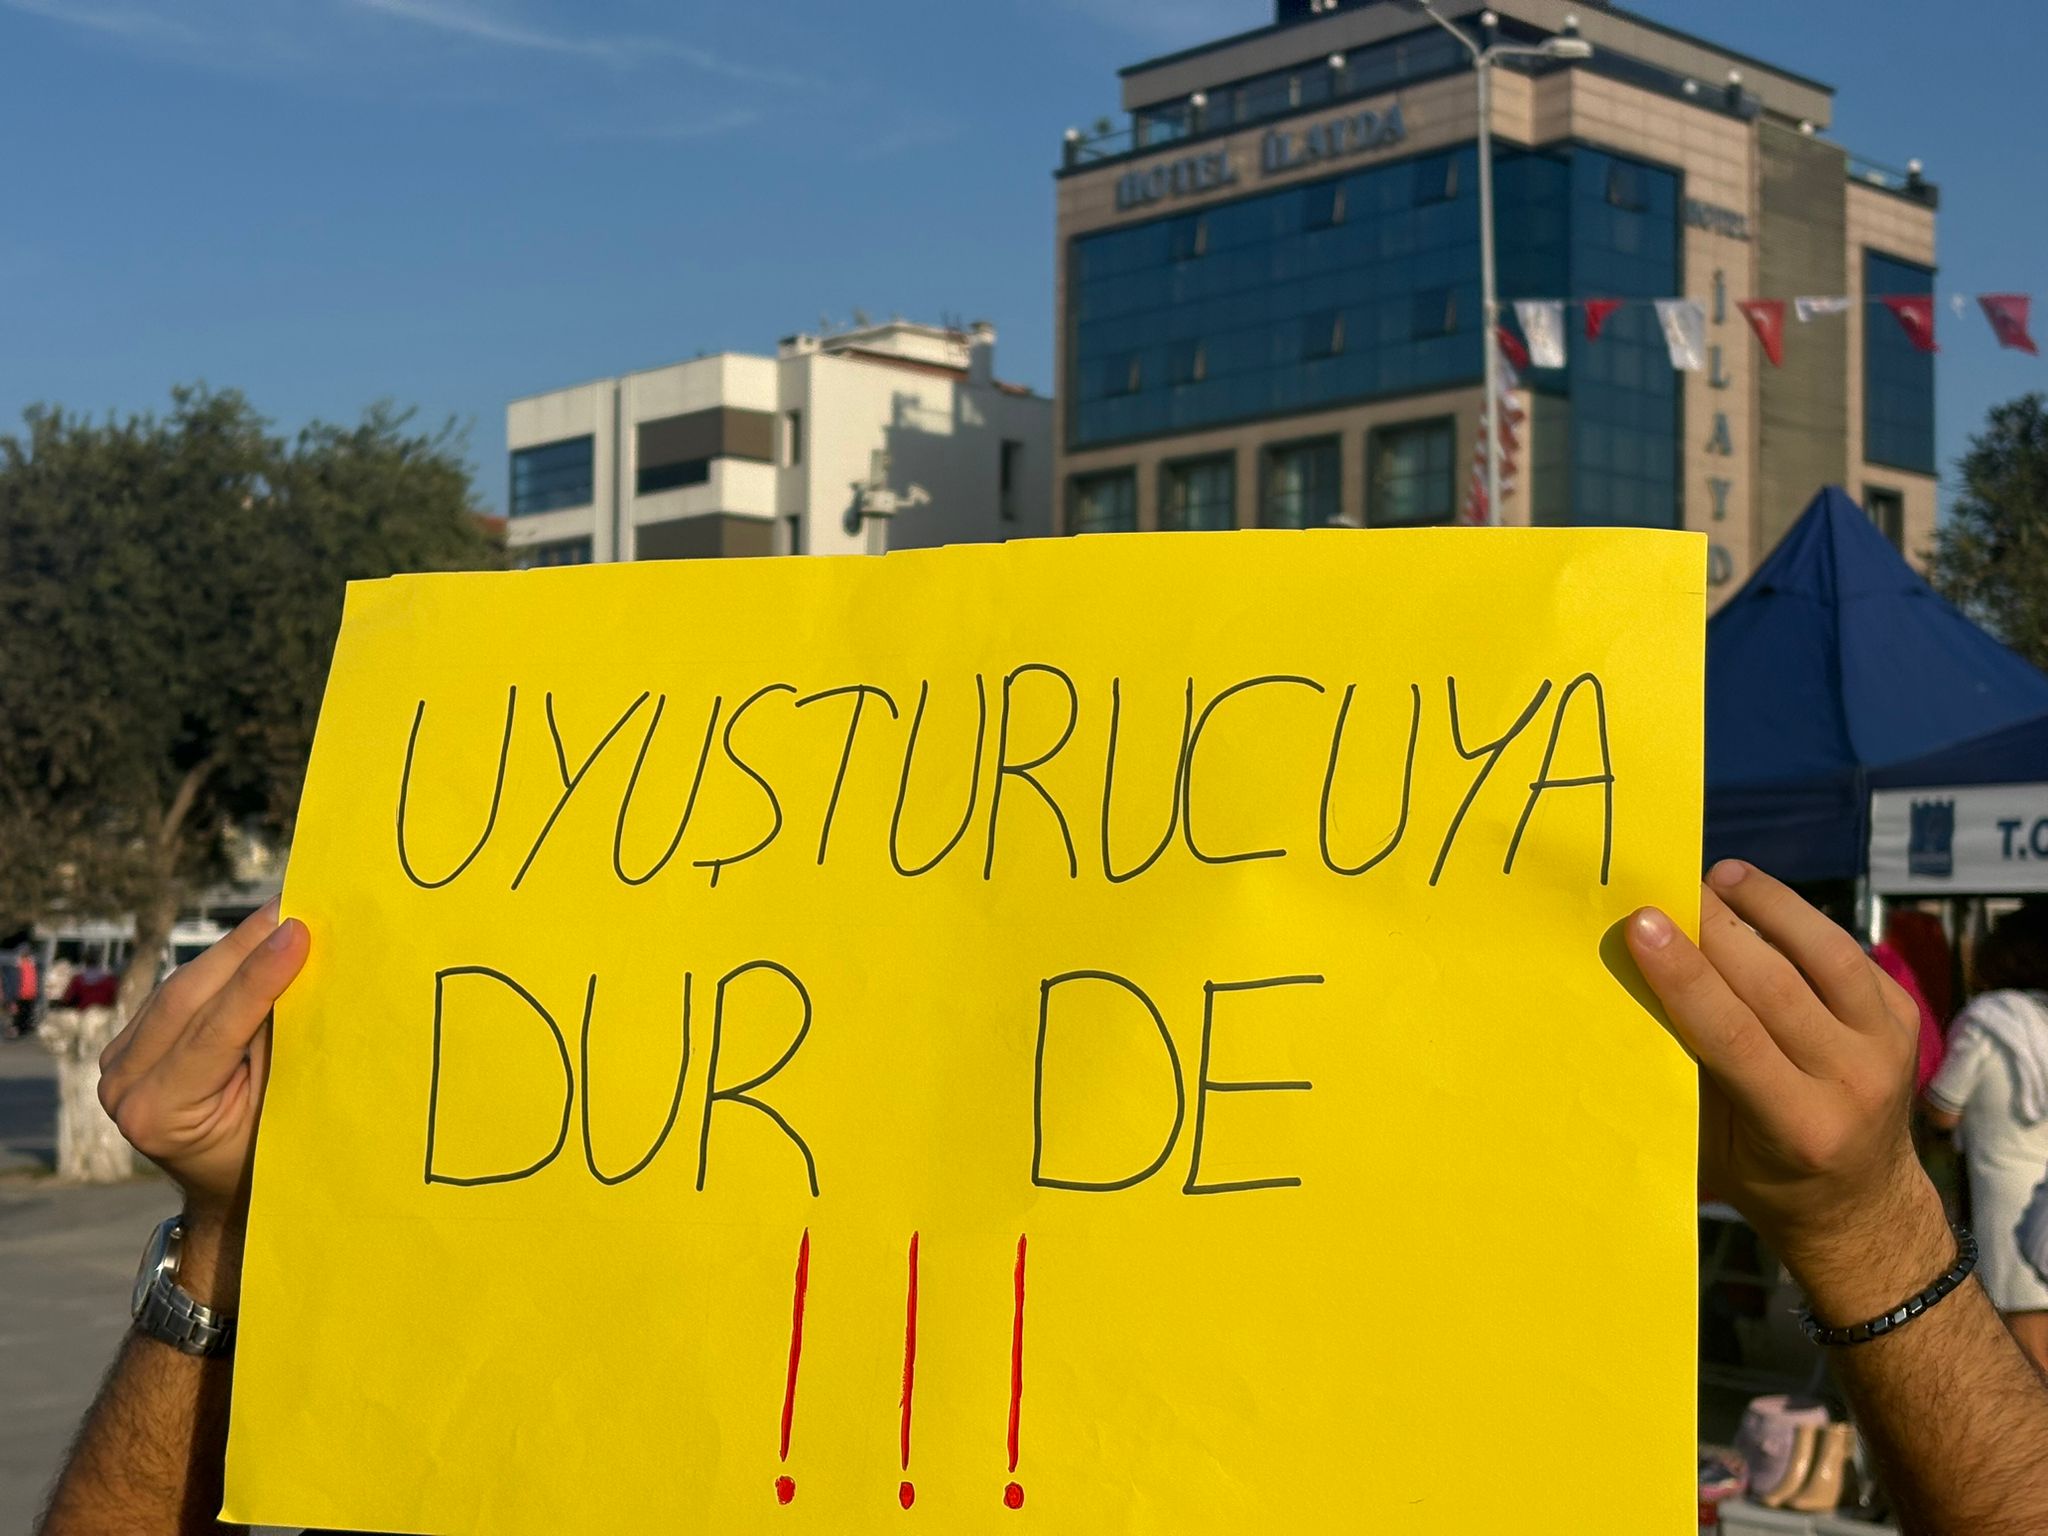 HOTEL İLAYDA
HOTEL
İLAYD
UYUŞTURUCUYA
DUR DE
!!!